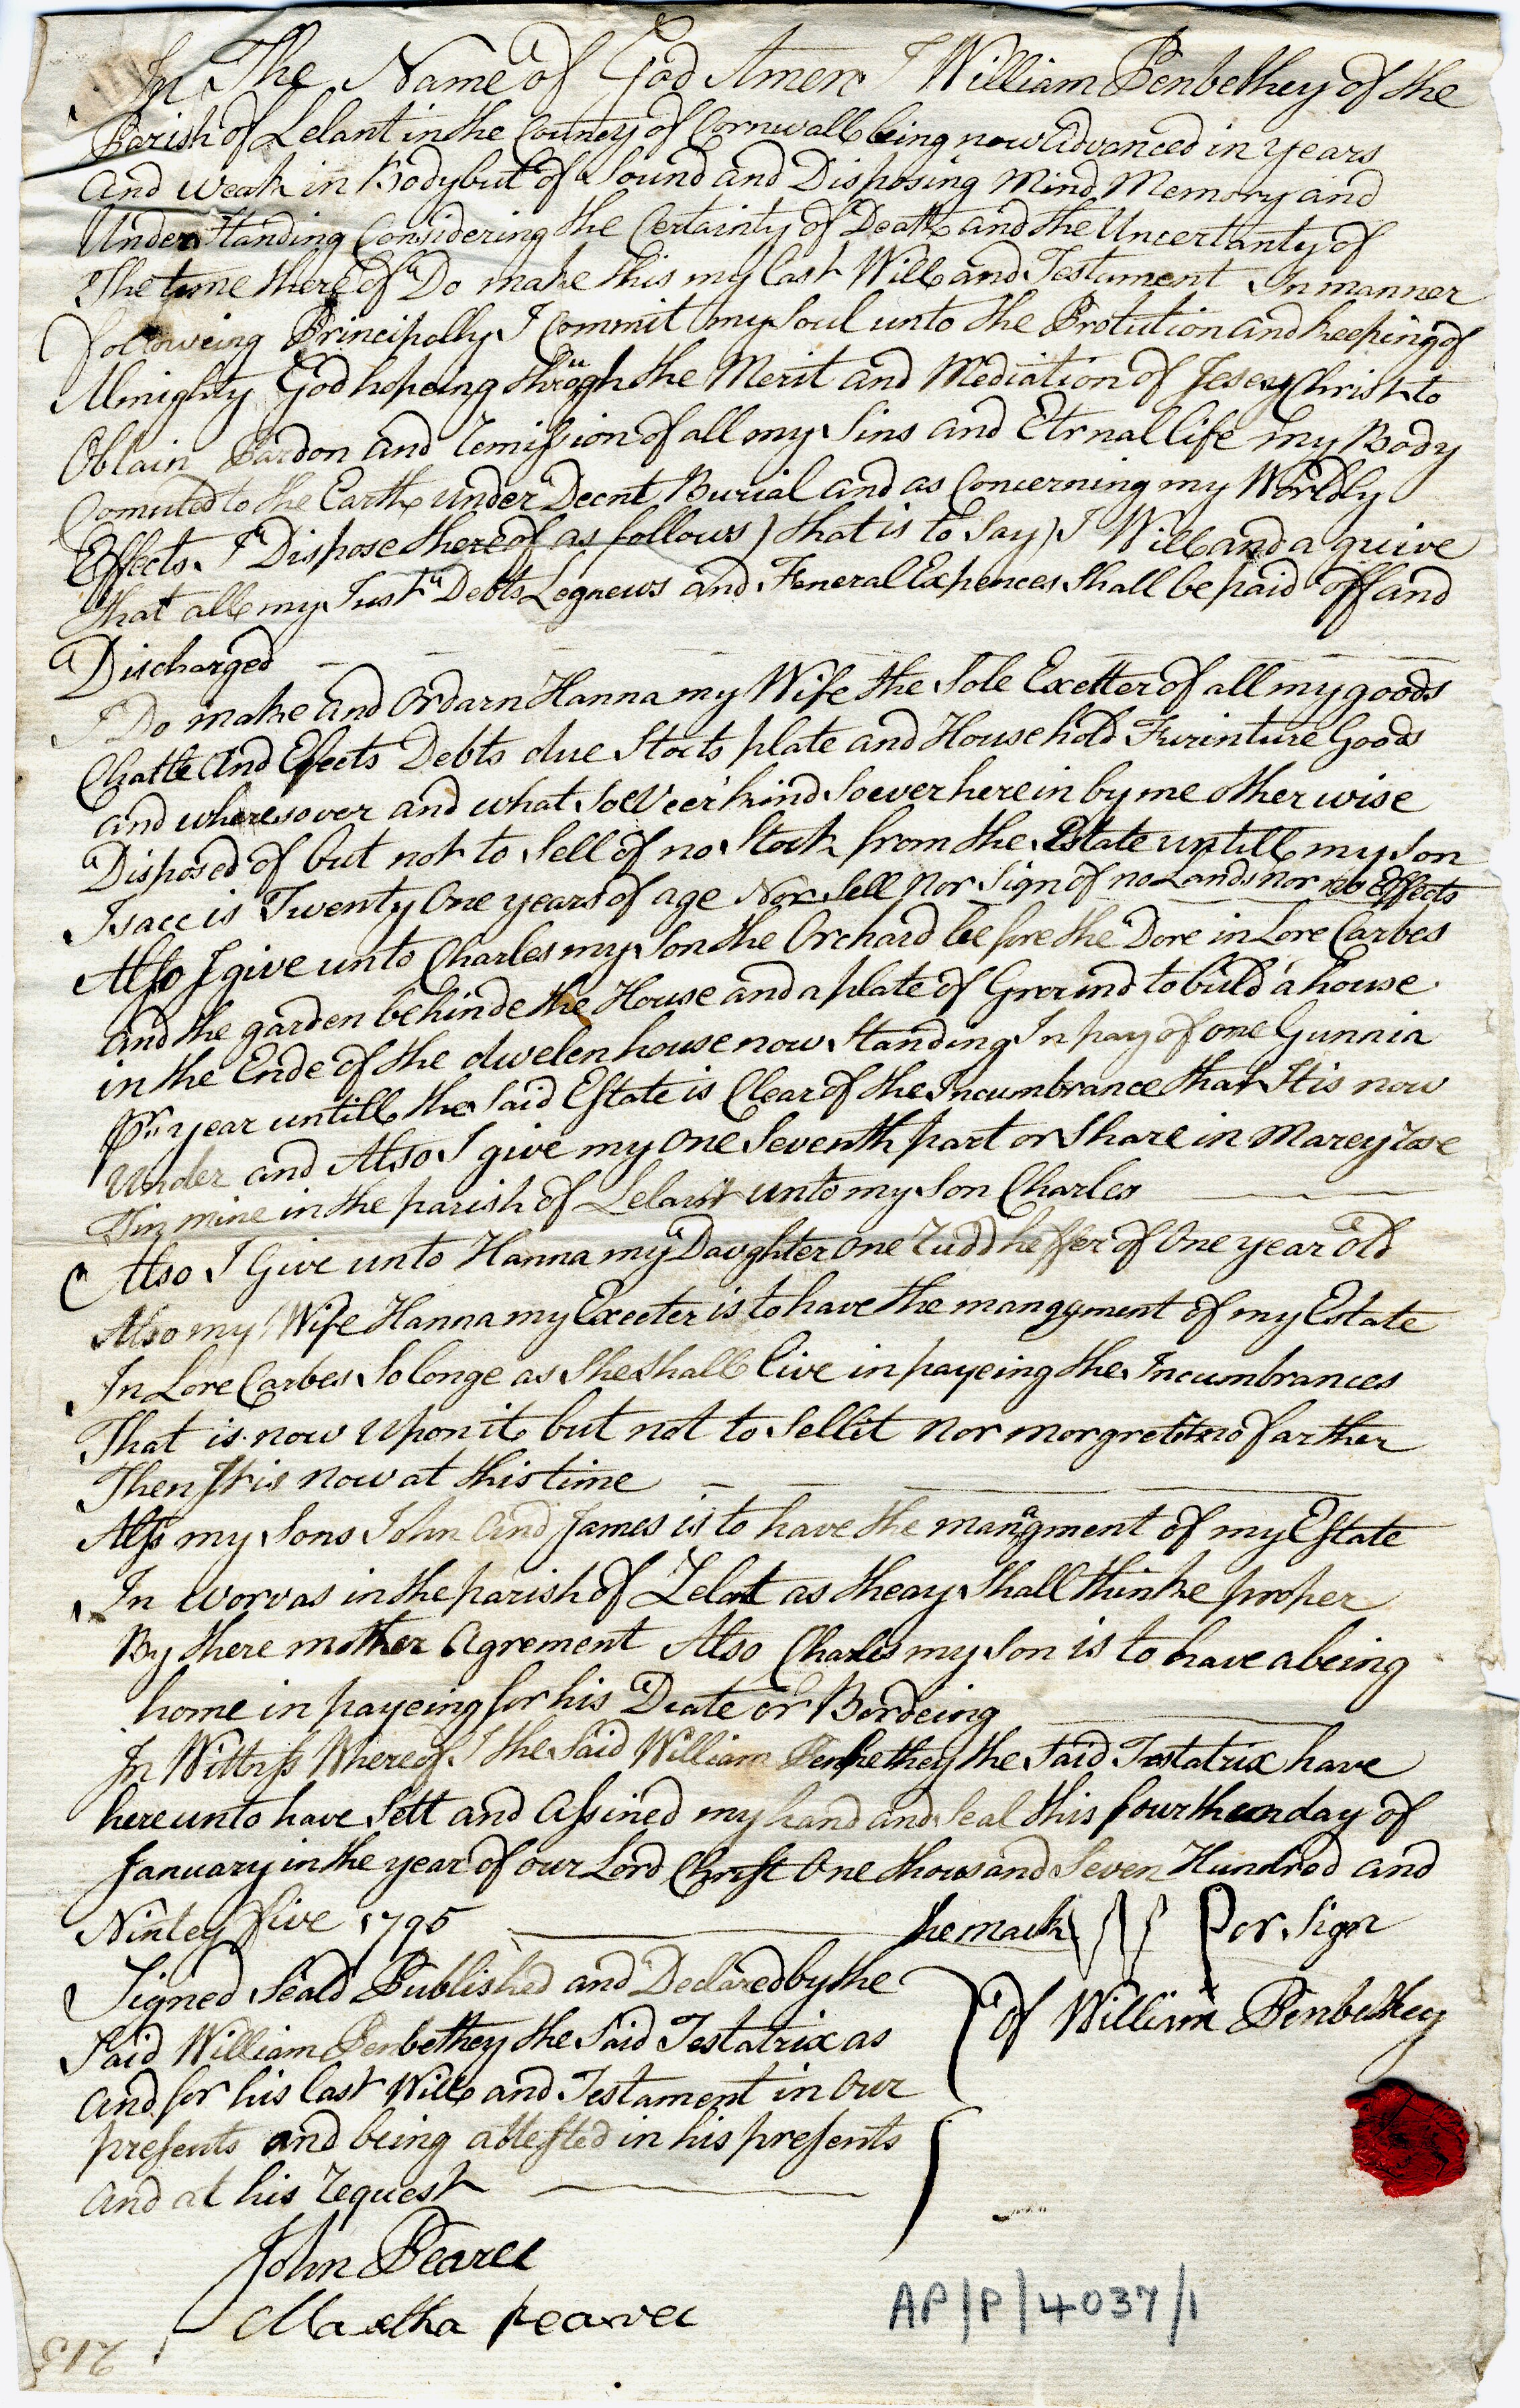 In The Name of God Amen I William Penbethey of the
Parish of Lelant in the County of Cornwall being now advanced in years
and weak in Body but of Sound and Disposing Mind Memory and
Under Standing Considering the Certainty of Death and the Uncertanty of
The time there of Do make this my last Will and Testament In manner
followeing Principally I Commit my Soul unto the Protution and keeping of
Almighty God hopeing through the Merit and Mediation of Jesey Christ to
Obtain Pardon and Remission of all my Sins and Eternal life my Body
Comuted to the Earth under Decnt Burial and as Concerning my Worldly
Effects I Dispose thereof as follows) that is to Say) I Will and a quire
that all my Just Debts Legnews and Feneral Expences Shall be paid off and
Discharged
I Do make and Ordarn Hanna my Wife the Sole Exetter of all my goods
Chatle And Efects Debts due Stocts plate and House hold Furinture Goods
and wheresover and what Soeveer kind Soever herein by me other wise
Disposed of but not to Sell of no Stock from the Estate untill my Son
Isacc is Twenty One years of age Nor Sell nor Sign of no Lands nor no Effects
Also I give unto Charles my Son the Orchard be fore the Dore in Lore Carbes
and the garden behinde the House and a plate of Ground to build a house
in the Ende of the dwelen house now Standing In pay of one Gunnia
pr year untill the Said Estate is Clear of the Incumbrance that It is now
Under and Also I give my One Seventh part or Share in Marey rose
Tin mine in the parish of Lelant unto my Son Charles
Also I Give unto Hanna my Daughter one Rudd heffer of One year old
Also my Wife Hanna my Execter is to have the mangyment of my Estate
In Lore Carbes So longe as She Shall live in payeing the Incumbrances
That is now Upon it but not to Sell it nor morgret it no farther
Then It is now at this time
Also my Sons John and James is to have the mangment of my Estate
In worvas in the parish of Lelat as theay Shall thinke proper
By there mother Agrement Also Charles my Son is to have a being
home in payeing for his Diate or Bordeing
In Wittnss Whereof I the Said William Penbethey the Said Testatrix have
here unto have Sett and Assined my hand and Seal this fourtheen day of
January in the year of our Lord Christ One thousand Seven Hundred and
Nintey five 1795 the mark or Sign
Signed Seald Published and Declared by the
of William Penbethey
Said William Penbethey the Said Testatrix as
and for his last Will and Testament in Our
presents and being attested in his presents
and at his Request
John Pearce
Martha pearce
AP/P/4037/1